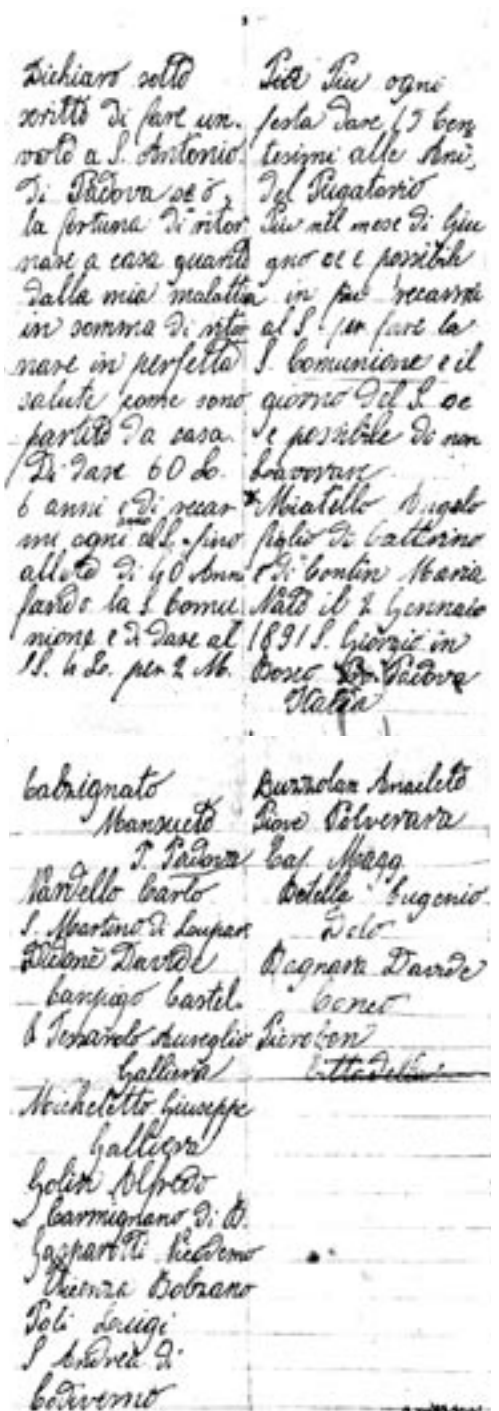 Dichiaro sotto
scritto di fare un
voto a S. Antonio
di Padova se ò
la fortuna di ritor
nare a casa guarito
dalla mia malattia
in somma di ritor
nare in perfetta
salute come sono
partito da casa.
Di dare 60 L.
6 anni e di recar
mi ogni anno al S. fino
alletà di 40 Anni
fando la S. Comu
nione e di dare al
SS. 4 Lo. per 2 M.
Piu ogni
festa dare 15 Cen
tesimi alle Ani,
del Pugatorio
Piu nell mese di Giu
gno se e possibile
in piu recarmi
al S. per fare la
S. Comunione e il
giorno del S. se
e possibile di non
Lavorare
Miatello Angelo
figlio di Catterino
e di Contin Maria
Nato il 2 Gennaio
1891 S. Giorgio in
Bosco Padova
Italia
Calzignato
Mansueto
P. Padova
Nardello Carlo
S. Martino di Lupare
Davide
Campigo Castel.
Aureglio
Galliera
Micheletto Giuseppe
Galliera
Golin Alfredo
Carmignano di B.
Gasparotti Nicodemo
Vicenza Bolzano
Poli Luigi
S Andrea di
Codiverno
Buzzolan Anacleto
Piove Polverara
Cap. Magg
Betella Eugenio
Dolo
Bagnara Davide
Coneo
Pierobon
Cittadella